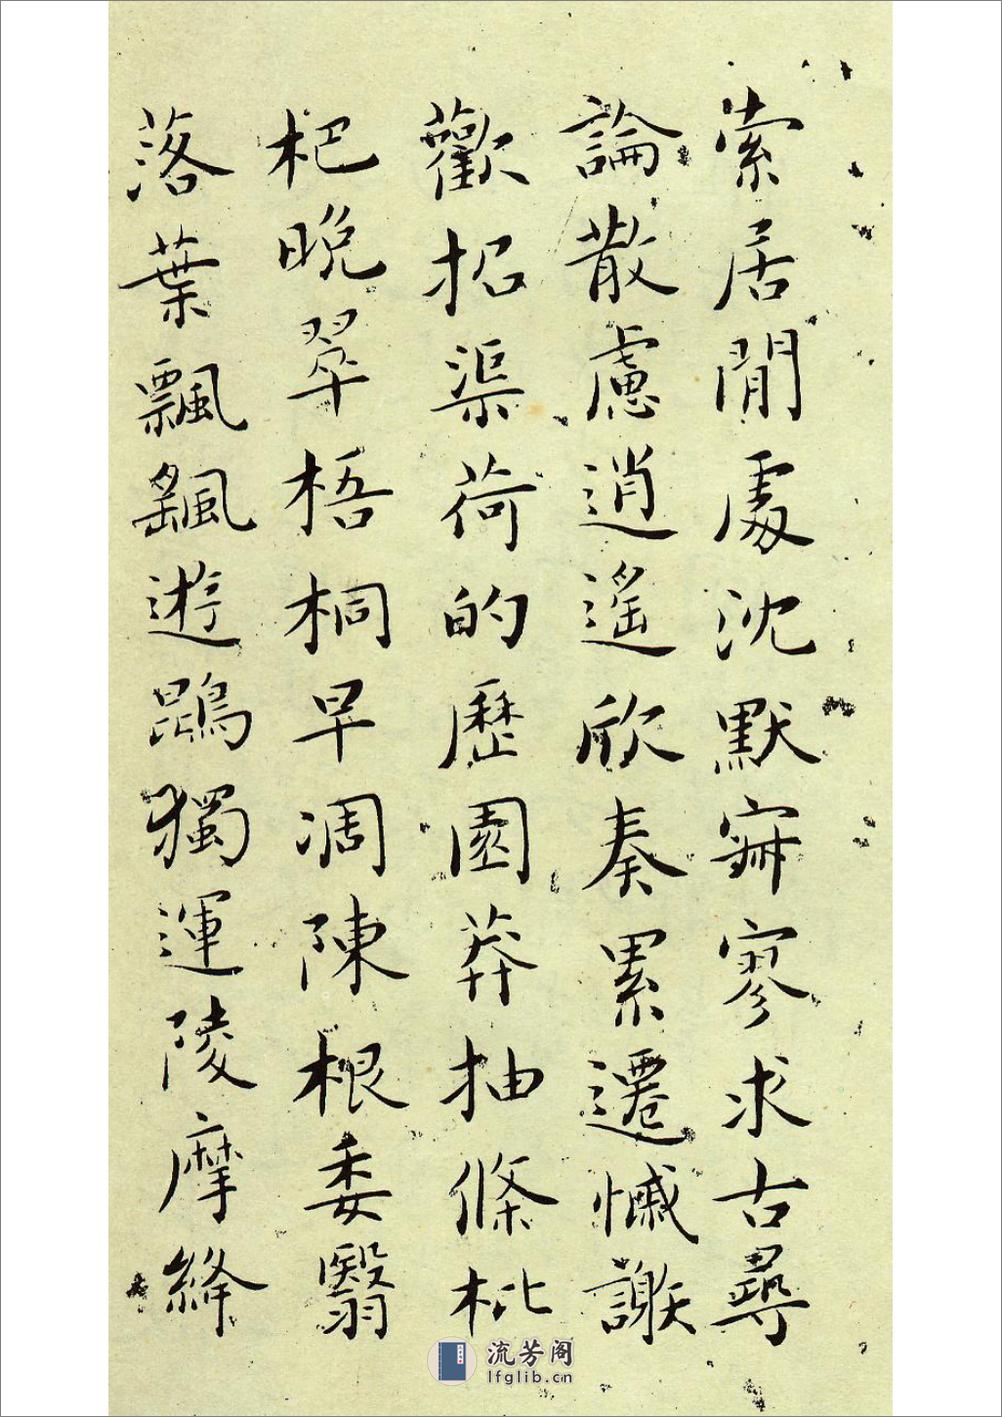 索居閒處沈默寂寥求古尋
論散慮逍遙欣奏累遣慽謝
歡招渠荷的歷園莽抽條枇
杷晚翠梧桐早凋陳根委翳
落葉飄颻遊鵾獨運陵摩絳
流芳阁
lfglib.cn